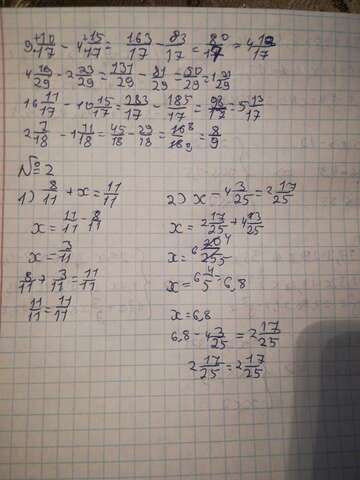 9 10/17 - 4 15/17 = 163/17 - 83/17 = 80/17 = 4 12/17
4 15/29 - 2 23/29 = 131/29 - 81/29 = 50/29 = 1 21/29
16 11/17 - 10 15/17 = 283/17 - 185/17 = 98/17 = 5 13/17
- 1 11/18 = 45/18 - 29/18 = 16 8/18 9 = 8/9
№ 2
1) 8/11 + x = 11/11
x = 11/11 - 8/11
x = 3/11
8/11 + 3/11 = 11/11
11/11 = 11/11
2) x - 4 3/25 = 2 17/25
x = 2 17/25 + 4 3/25
x = 6 20 4/25 5
x = 6 4/5 = 6,8
x = 6,8
6,8 - 4 3/25 = 2 17/25
2 17/25 = 2 17/25